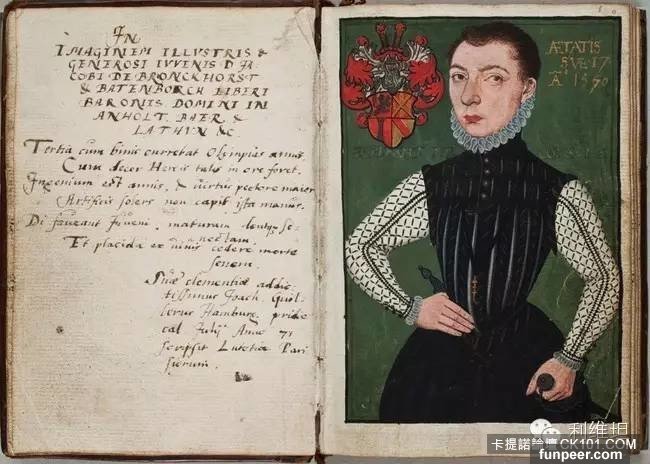 IN
IMAGINEM ILLUSTRIS &
GENEROSI IUVENIS D JA
COBI DE BRONCKHORST
& BATENBORCH LIBERI
BARONIS DOMINI IN
ANHOLT BAER &
LATHUN &c
Tertia cum binis currebat Olympias annis,
Cum decor Heroïs talis in ore foret.
Ingenium est annis, & virtus pectore maior
Artificis solers non capit ista manus.
Di faveant Juveni, maturam
Et placida ex vivis cedere morte
senem.
Suae clementiae addic
tissimus Joach.
Hamburg. pridie
cal Julij Anno 71
scripsit Lutetiae Pari
siorum.
ÆTATIS
SVÆ 17
Aº 1570
利維坦
卡提諾論壇 CK101.COM
funpeer.com